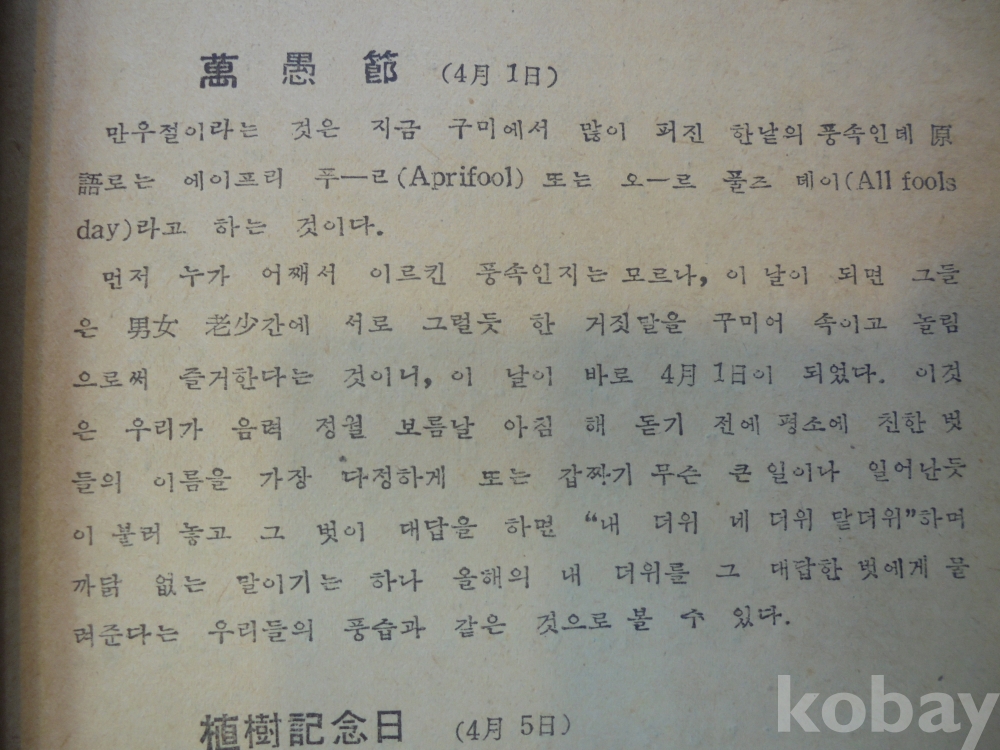 萬愚節 (4月 1日)
만우절이라는 것은 지금 구미에서 많이 퍼진 한낱의 풍속인데 原
語로는 에이프리 푸—ㄹ(Aprifool) 또는 오—르 풀즈 데이(All fools
day)라고 하는 것이다.
먼저 누가 어째서 이르킨 풍속인지는 모르나, 이 날이 되면 그들
은 男女 老少간에 서로 그럴듯 한 거짓말을 꾸미어 속이고 놀림
으로써 즐거한다는 것이니, 이 날이 바로 4月 1日이 되었다. 이것
은 우리가 음력 정월 보름날 아침 해 돋기 전에 평소에 친한 벗
들의 이름을 가장 다정하게 또는 갑짝기 무슨 큰 일이나 일어난듯
이 불러 놓고 그 벗이 대답을 하면 “내 더위 네 더위 맏더위”하며
까닭 없는 말이기는 하나 올해의 내 더위를 그 대답한 벗에게 물
려준다는 우리들의 풍습과 같은 것으로 볼 수 있다.
植樹記念日 (4月 5日)
kobay